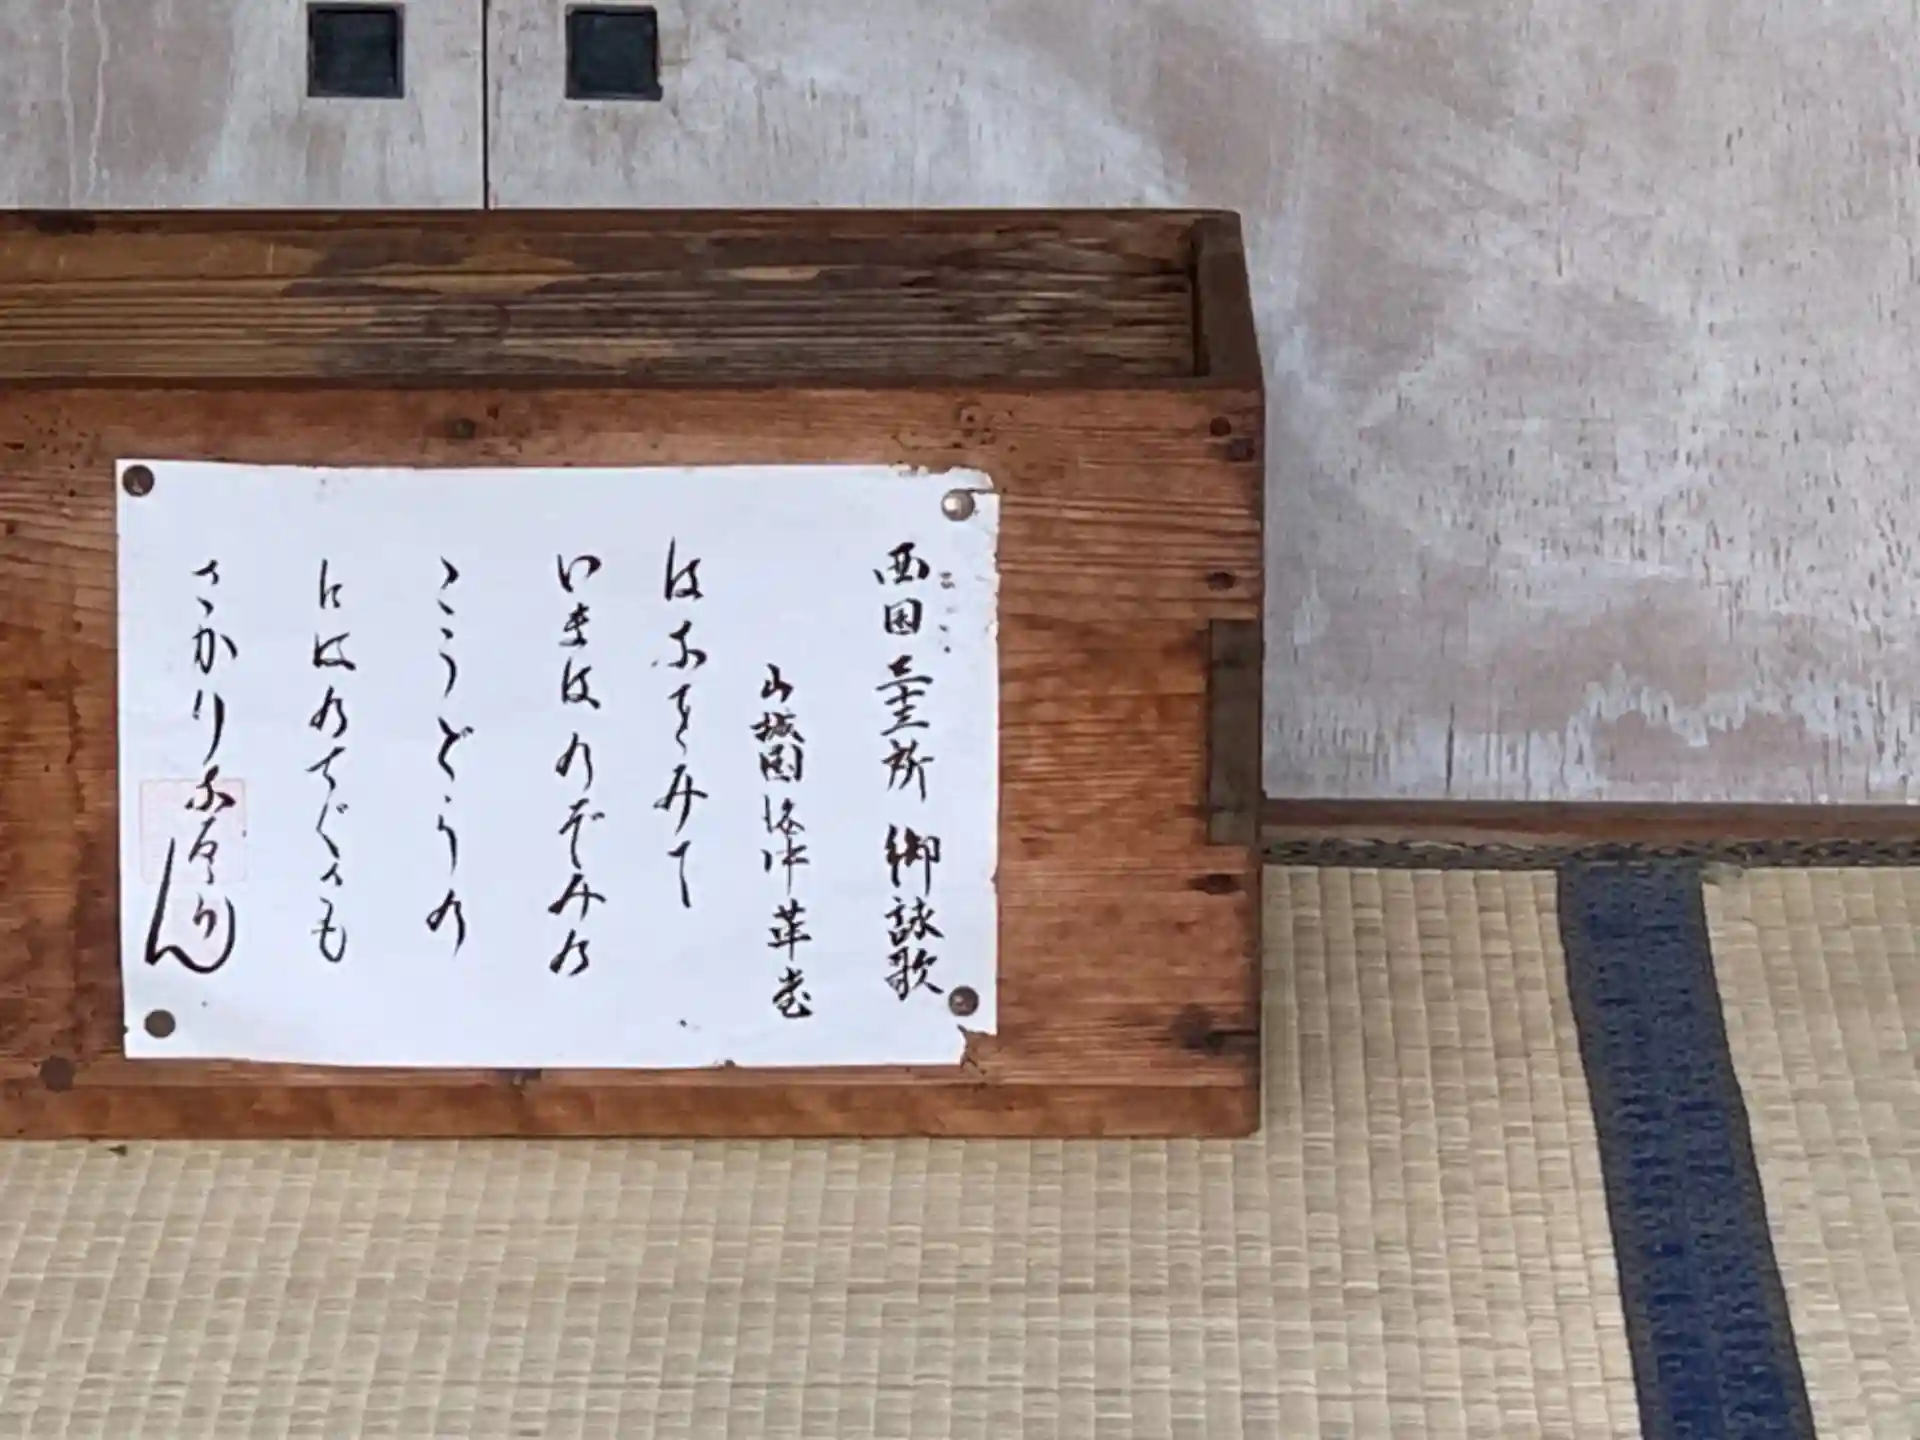 西国三十三所 御詠歌
山城国 洛中 革堂
はなをみて
いまはのぞみの
こうどうの
にはのちぐさも
さかりなるらん